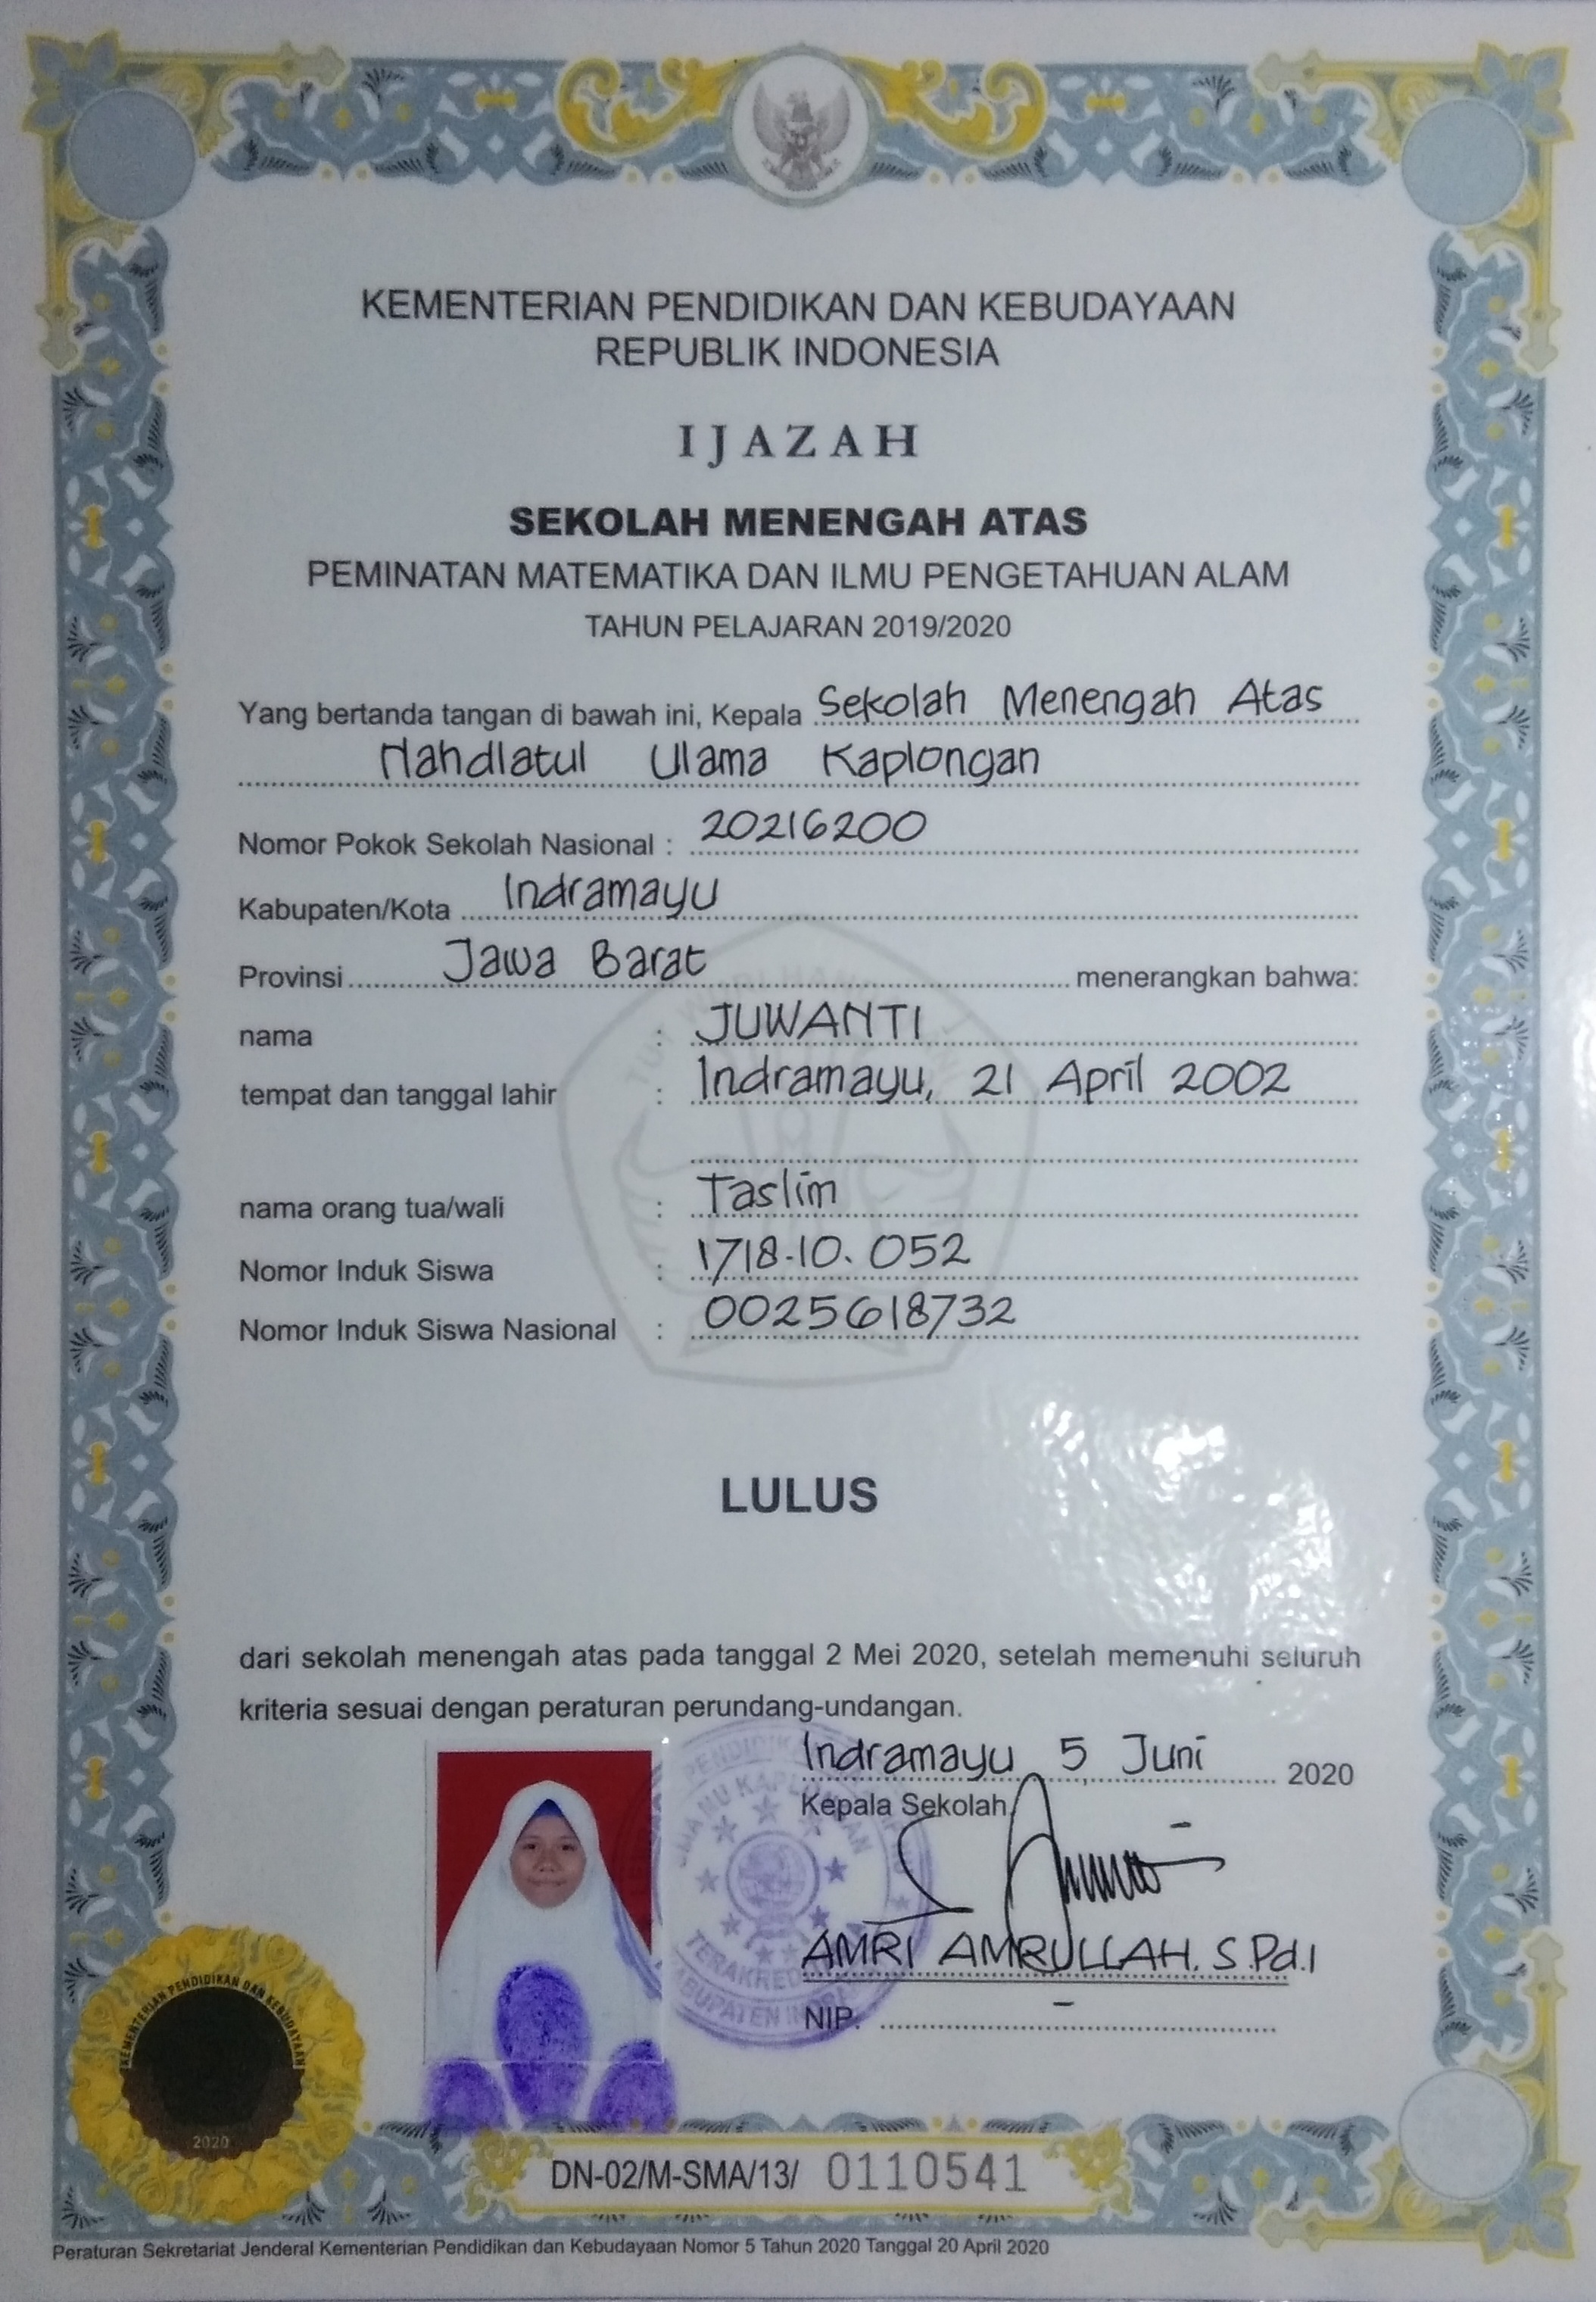 KEMENTERIAN PENDIDIKAN DAN KEBUDAYAAN
REPUBLIK INDONESIA
IJAZAH
SEKOLAH MENENGAH ATAS
PEMINATAN MATEMATIKA DAN ILMU PENGETAHUAN ALAM
TAHUN PELAJARAN 2019/2020
Yang bertanda tangan di bawah ini, Kepala Sekolah Menengah Atas
Nahdlatul Ulama Kaplongan
Nomor Pokok Sekolah Nasional : 20216200
Kabupaten/Kota Indramayu
Provinsi Jawa Barat menerangkan bahwa:
nama : JUWANTI
tempat dan tanggal lahir : Indramayu, 21 April 2002
nama orang tua/wali : Taslim
Nomor Induk Siswa : 1718.10.052
Nomor Induk Siswa Nasional : 0025618732
LULUS
dari sekolah menengah atas pada tanggal 2 Mei 2020, setelah memenuhi seluruh
kriteria sesuai dengan peraturan perundang-undangan.
Indramayu, 5 Juni 2020
Kepala Sekolah,
AMRI AMRULLAH. S.Pd.I
NIP. -
KEMENTERIAN PENDIDIKAN DAN KEBUDAYAAN
2020
DN-02/M-SMA/13/ 0110541
Peraturan Sekretariat Jenderal Kementerian Pendidikan dan Kebudayaan Nomor 5 Tahun 2020 Tanggal 20 April 2020